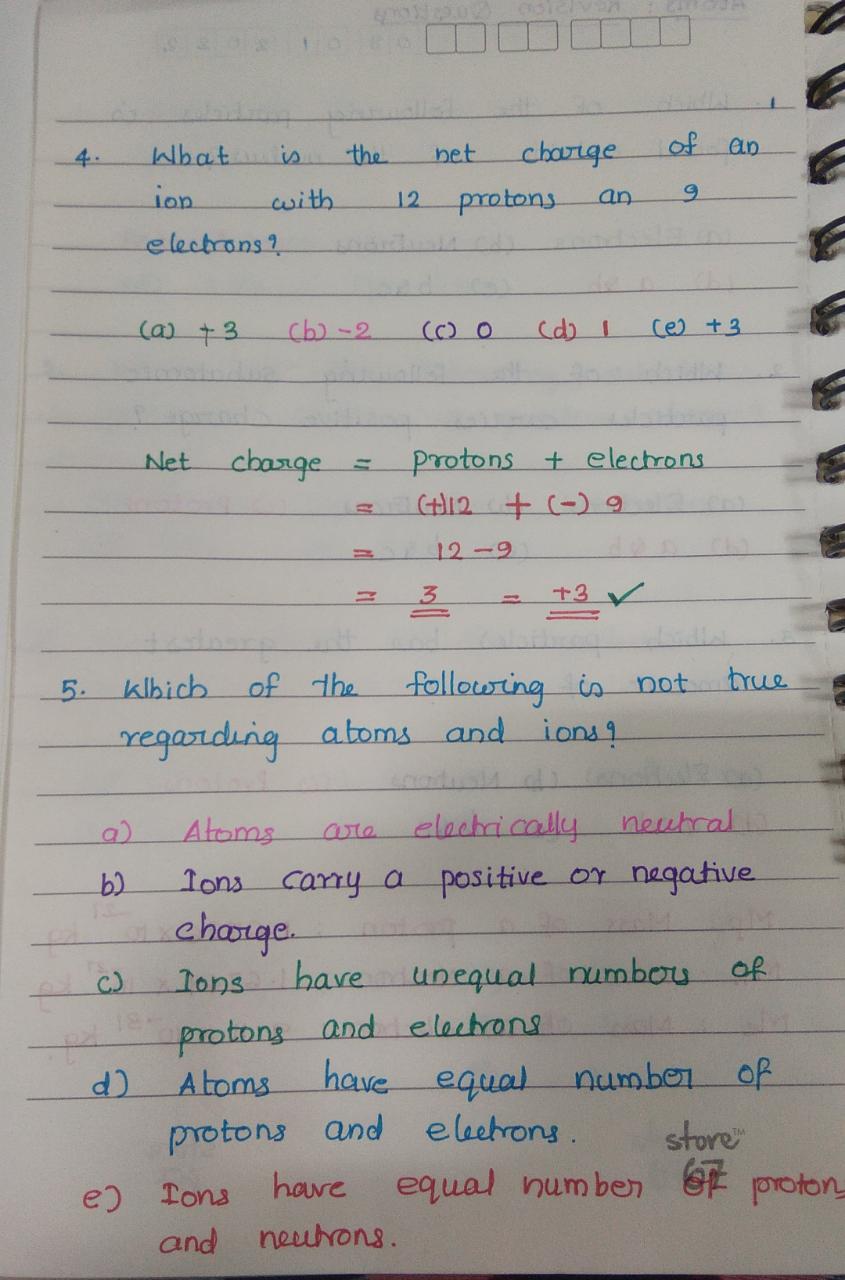 4. What is the net charge of an
ion with 12 protons an 9
electrons?
(a) +3 (b) -2 (c) 0 (d) 1 (e) +3
Net charge = protons + electrons
= (+)12 + (-) 9
= 12 - 9
= 3 = +3 ✓
5. Which of the following is not true
regarding atoms and ions?
a) Atoms are electrically neutral
b) Ions carry a positive or negative
charge.
c) Ions have unequal numbers of
protons and electrons
d) Atoms have equal number of
protons and electrons.
store™
67
e) Ions have equal number of proton
and neutrons.